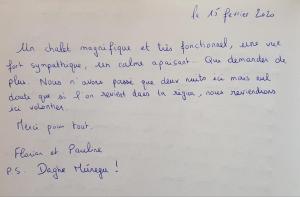 le 15 février 2020
Un chalet magnifique et très fonctionnel, une vue
fort sympathique, un calme apaisant... Que demander de
plus. Nous n'avons passé que deux nuits ici mais nul
doute que si l'on revient dans la région, nous reviendrons
ici volontier.
Merci pour tout.
Florian et Pauline
P.S. Daghe !